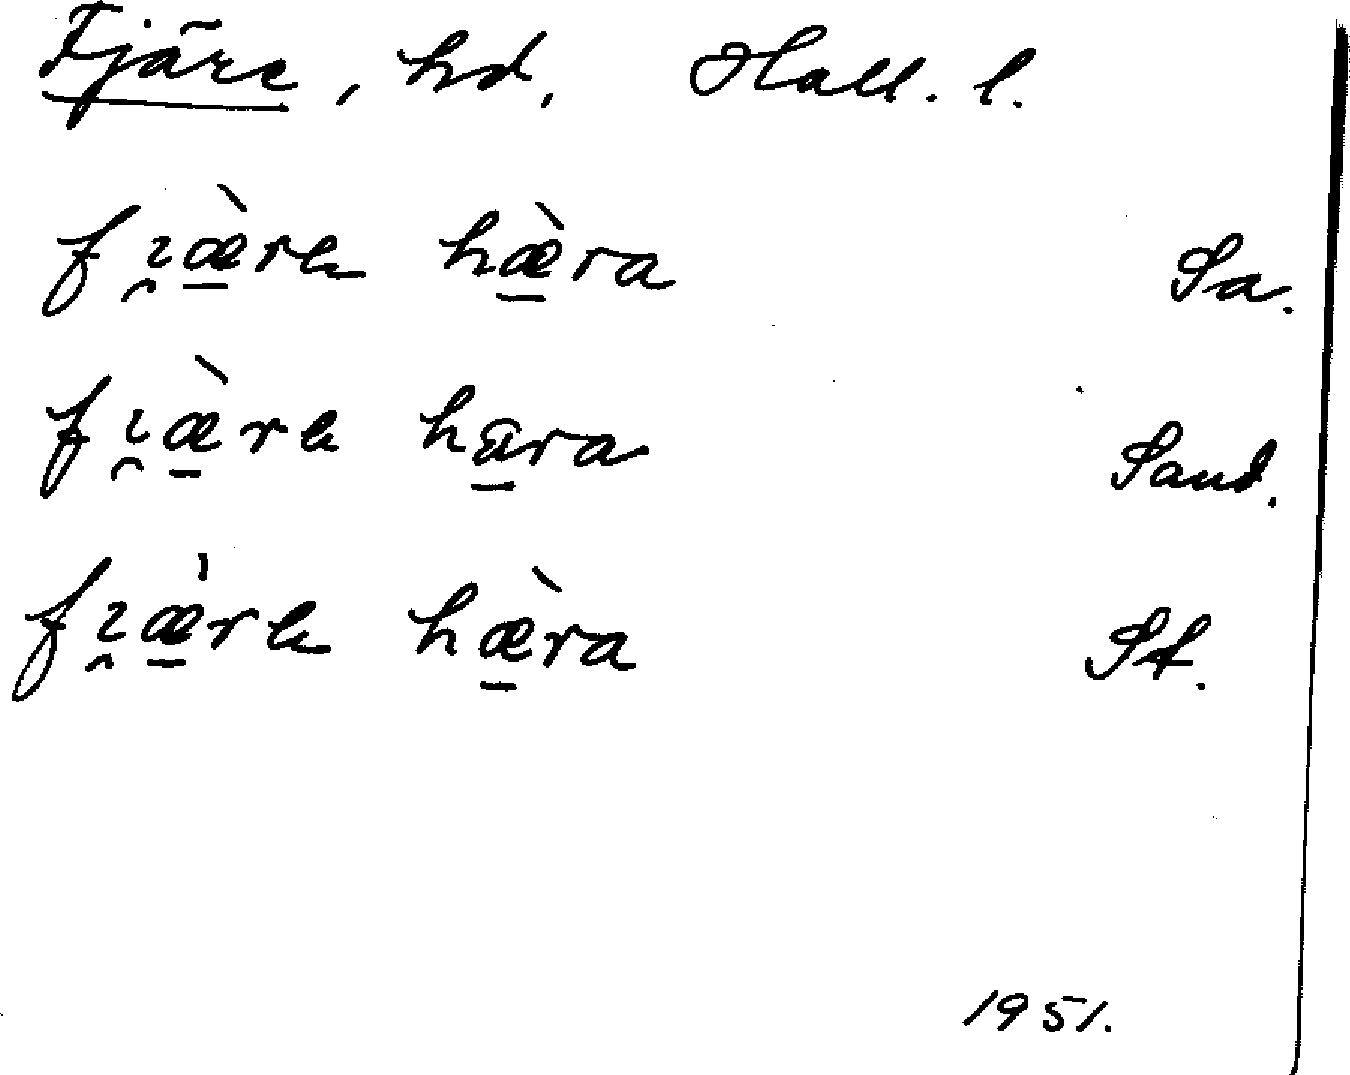 Fjäre, hd, Hall. l.
fɩ̯æ̠̀rɐ hæ̠̀ra Sa.
fɩ̯æ̠̀rɐ ha̠ra Sand.
fɩ̯æ̠̀rɐ hæ̠̀ra St.
1951.